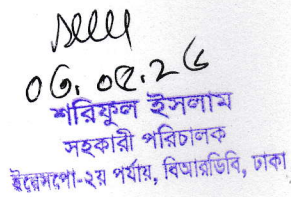 ০৫.০৫.২৫
শরিফুল ইসলাম
সহকারী পরিচালক
ইরেসপো-২য় পর্যায়, বিআরডিবি, ঢাকা